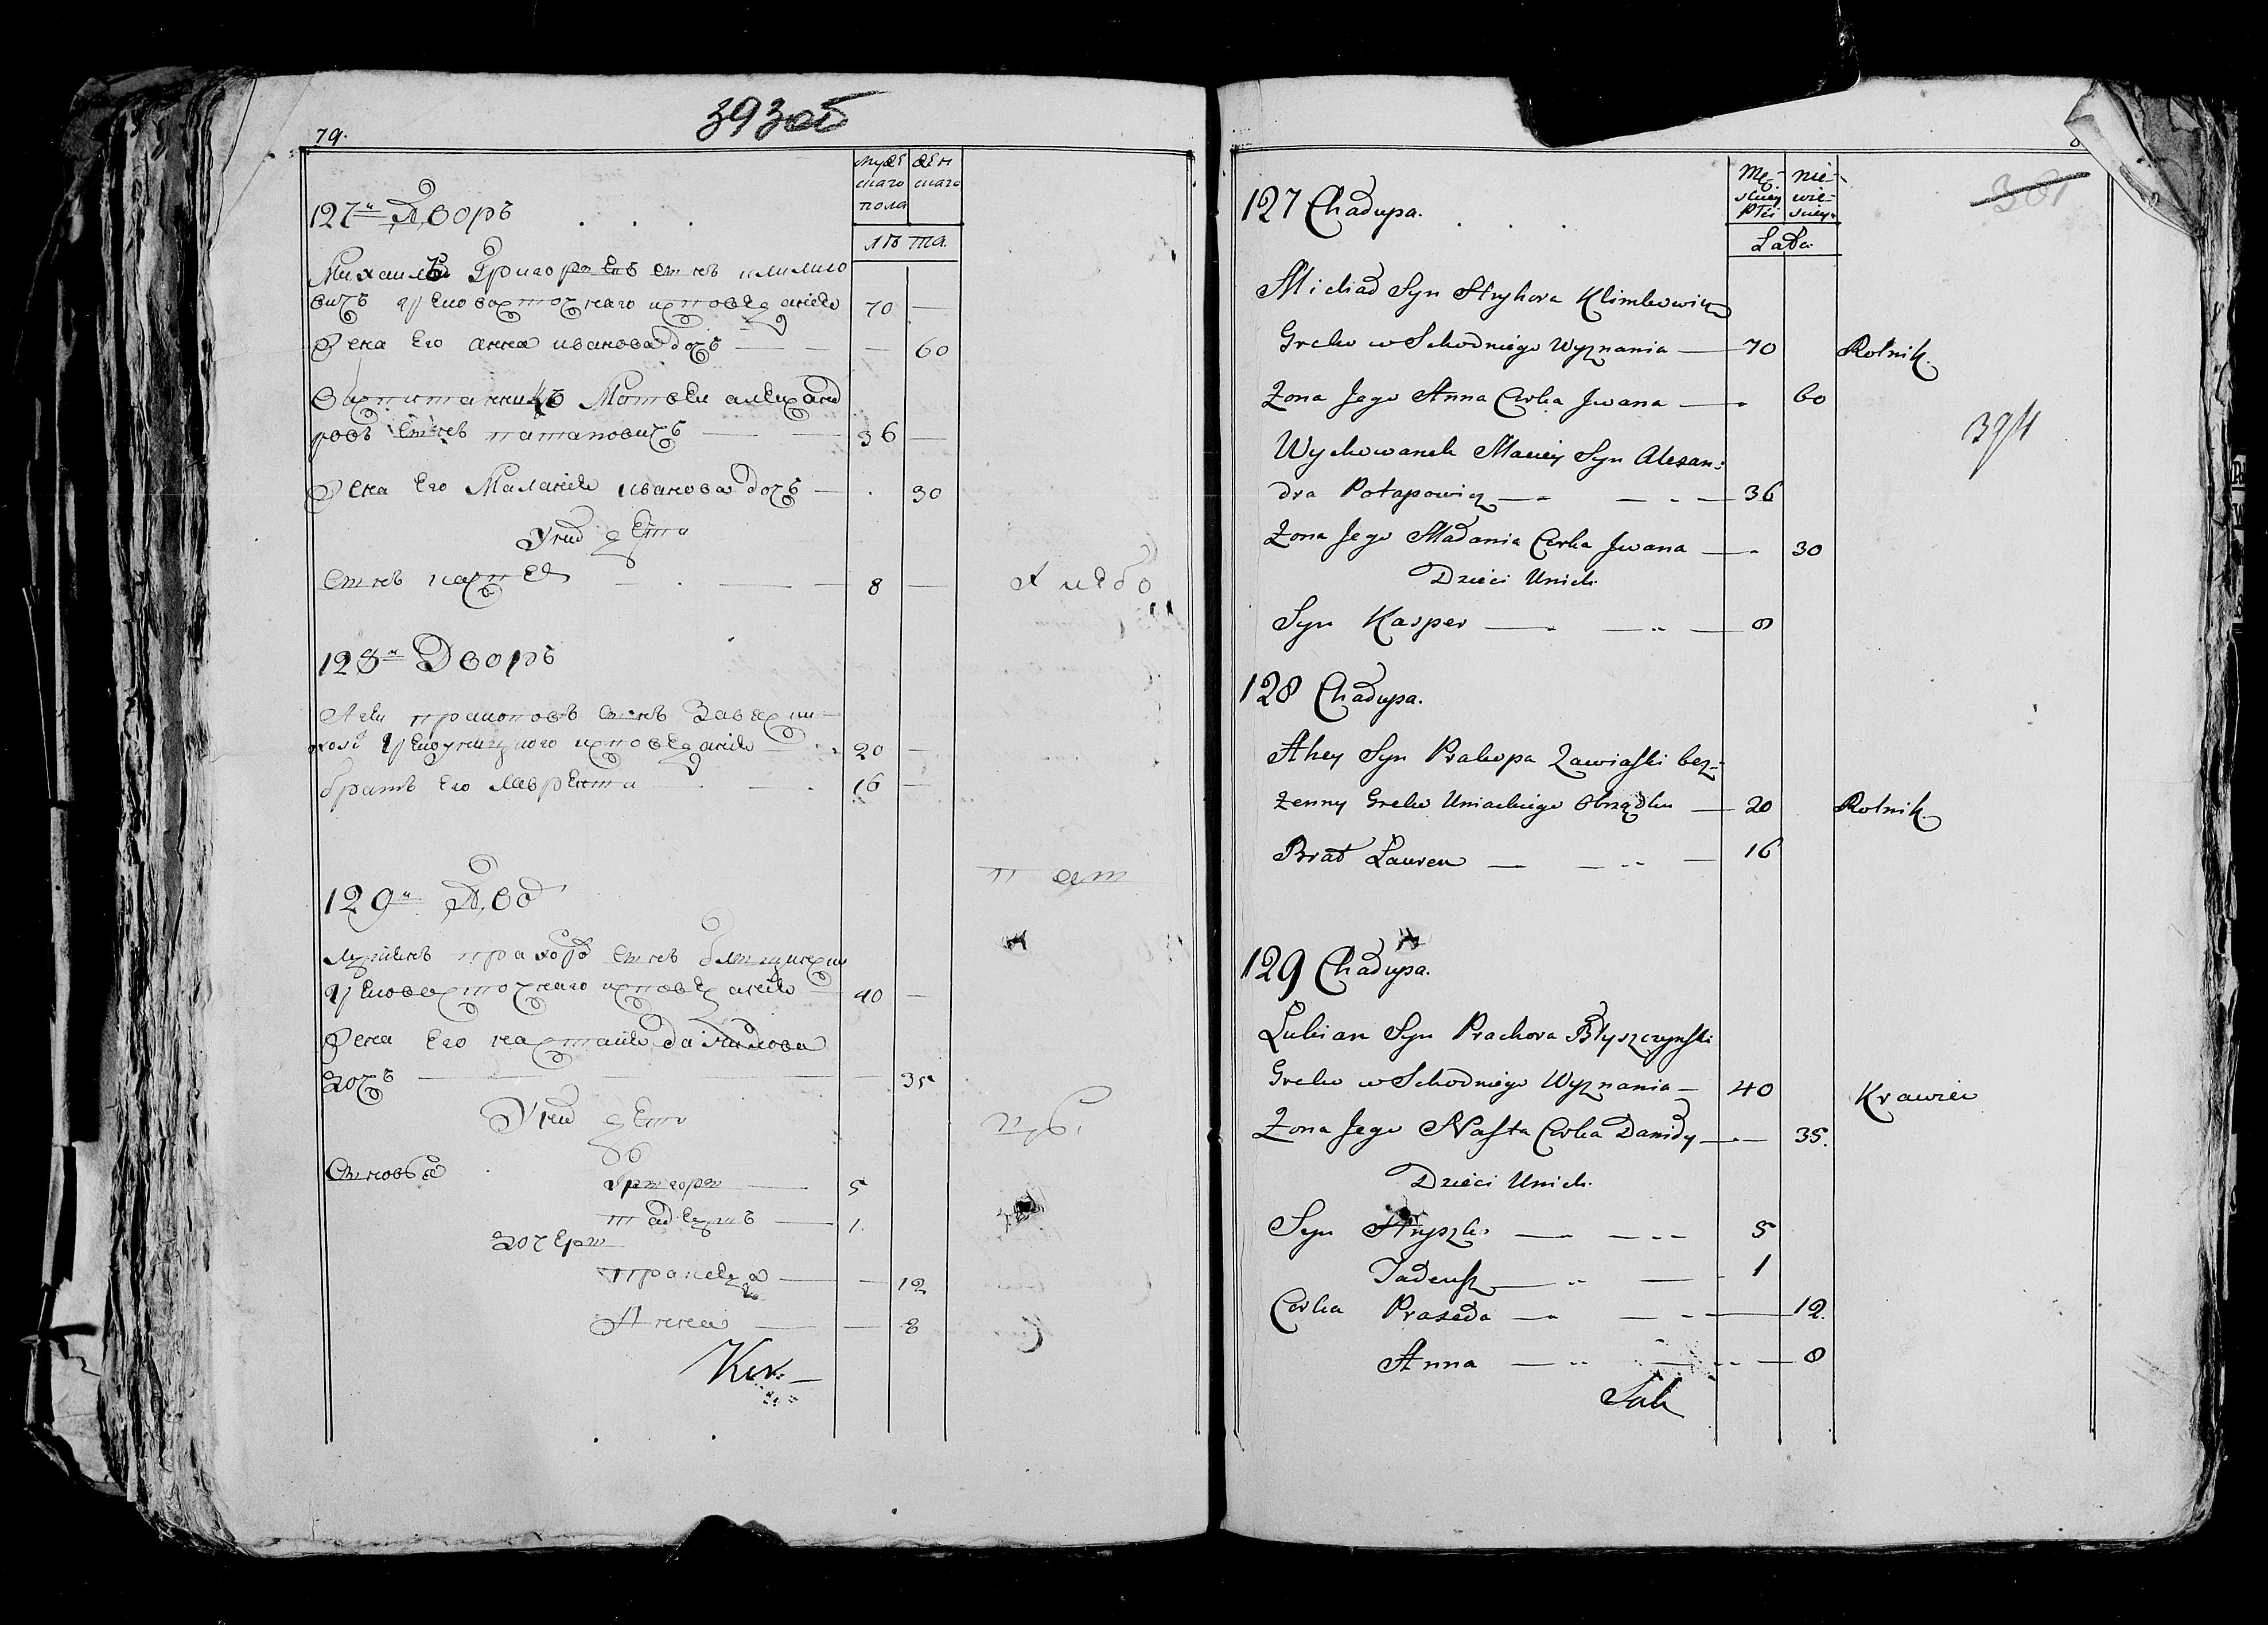 393об
79.
мужескаго пола
женскаго
лѣта.
127й Дворъ
Михаилъ Григориевъ сынъ климко
вичъ грековосточнаго исповеданія 70 —
Жена Его анна иванова дочь — — 60
воспитанникъ Матвеи александ
ровъ сынъ патаповичъ — — 36 —
Жена Его Маланія иванова дочь — . 30
У них дети
сынъ каспер — — 8 —
128й Дворъ
прокоповъ сынъ Завяс
греко исповеданія 20 —
братъ Его Лаврентии 16 —
129й Двод
прахоровъ сынъ
грековосточнаго исповеданія 40 —
Жена Его настасия данилова
дочь — 35
У них дети
Сыновья Григори — 5
тадеушъ — 1.
дочери
праседа — — 12
Анна — — 8
127 Chałupa.
Męskiey płci
niewieskiey
Lata
Michał Syn Hryhora Klimkowicz
Greko wSchodniego Wyznania — 70 Rolnik.
Zona Jego Anna Corka Jwana — 60
394
Wychowanek Maciey Syn Alexan:
dra Potapowicz — — 36
Zona Jego Małania Corka Jwana — 30
Dzieci Unich.
Syn Kasper — — 8
128 Chałupa.
Syn Prakopa Zawiaski bez-
zenny Greko Uniackiego Obrządku — 20 Rolnik.
Brat Lauren — — 16
129 Chałupa.
Lukian Syn Prachora Błyszczynski
Greko wSchodniego Wyznania — 40 Krawiec
Zona Jego Nasta Corka Daniły — 35.
Dzieci Unich.
Syn Hryszko — — 5
Tadeusz — — 1
Corka Praxeda — — 12.
Anna — — 8